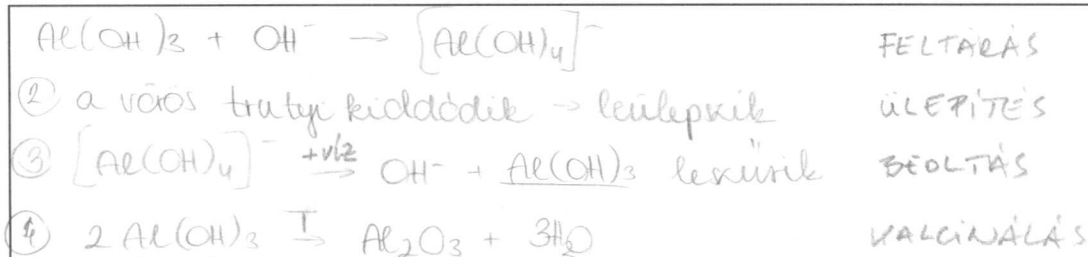 Al(OH)3 + OH⁻ → [Al(OH)4]⁻ FELTÁRÁS
② a vörös trutyi kiddódik → leülepszik ÜLEPÍTÉS
③ [Al(OH)4]⁻ +víz → OH⁻ + Al(OH)3 leszűrik BEOLTÁS
④ 2 Al(OH)3 T → Al2O3 + 3H2O KALCINÁLÁS